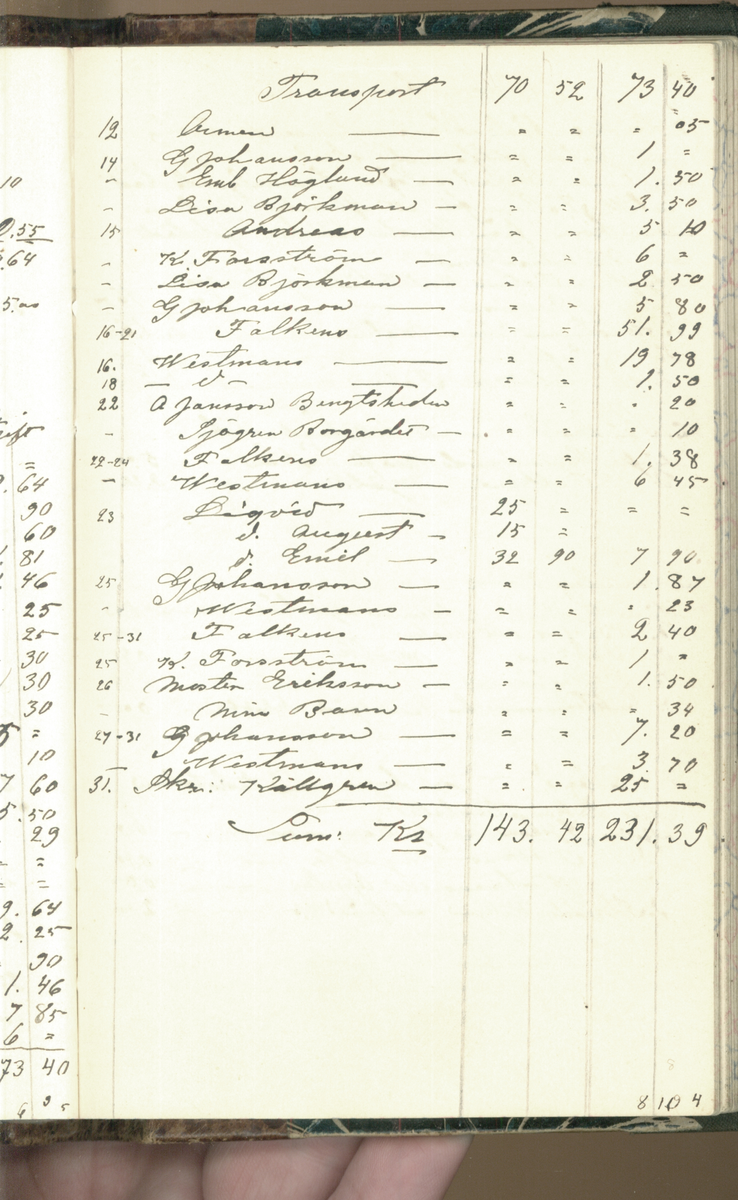 Transport 70 52 73 40
12 Armen — " " " 05
14 G Johansson — " " 1 "
" Emb Höglund — " " 1. 50
" Lisa Björkman — " " 3. 50
15 Andreas — " " 5 10
" K. Forsström — " " 6 "
" Lisa Björkman — " " 2 50
" G Johansson — " " 5 80
16-21 Falkens — " " 51. 99
16. Westmans — " " 19 78
18 — d — " " 1. 50
22 A Jansson Bengtsheden " " " 20
" Sjögren Borgärdet — " " " 10
22-24 Falkens — " " 1. 38
" Westmans — " " 6 45
23 Liqvid — 25 " " "
d. August — 15 "
d. Emil — 32 90 7 90
25 G Johansson — " " 1. 87
" Westmans — " " " 23
25-31 Falkens — " " 2 40
25 K. Forsström — " " 1 "
26 Moster Eriksson — " " 1. 50
" " " " 34
27-31 G Johansson — " " 7. 20
Westmans — " " 3. 70
31. Källgren — " " 25 "
Sum: Kr 143. 42 231. 39
8 10 4
10
2.55
64
64
90
60
81
46
25
25
30
30
30
"
10
7 60
5.50
29
" "
" "
9. 64
2. 25
90
1. 46
7 85
6 "
73 40